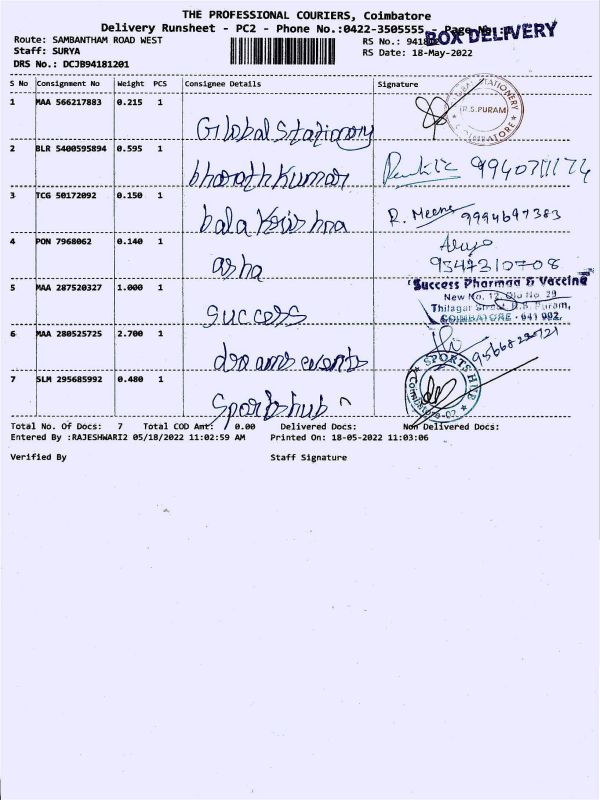 THE PROFESSIONAL COURIERS, Coimbatore
Delivery Runsheet - PC2 - Phone No.:0422-3505555
BOX DELIVERY
Route: SAMBANTHAM ROAD WEST RS No.: 9418
Staff: SURYA RS Date: 18-May-2022
DRS No.: DCJB94181201
S No Consignment No Weight PCS Consignee Details Signature
1 MAA 566217883 0.215 1 Global Stationery
R.S.PURAM
COIMBATORE
2 BLR 5400595894 0.595 1 bharath kumar
3 TCG 50172092 0.150 1 bala krishna R. Meena 9994697383
4 PON 7968062 0.140 1 asha 9347310708
5 MAA 287520327 1.000 1 success
Success Pharmaa & Vaccine
New No. 12, Old No. 29
Thilagar Street, R.S. Puram,
COIMBATORE - 641 002.
6 MAA 280525725 2.700 1 dreams events
7 SLM 295685992 0.480 1 Sports hub
SPORTS HUB
Coimbatore-02
Total No. Of Docs: 7 Total COD Amt: 0.00 Delivered Docs: Non Delivered Docs:
Entered By :RAJESHWARI2 05/18/2022 11:02:59 AM Printed On: 18-05-2022 11:03:06
Verified By Staff Signature